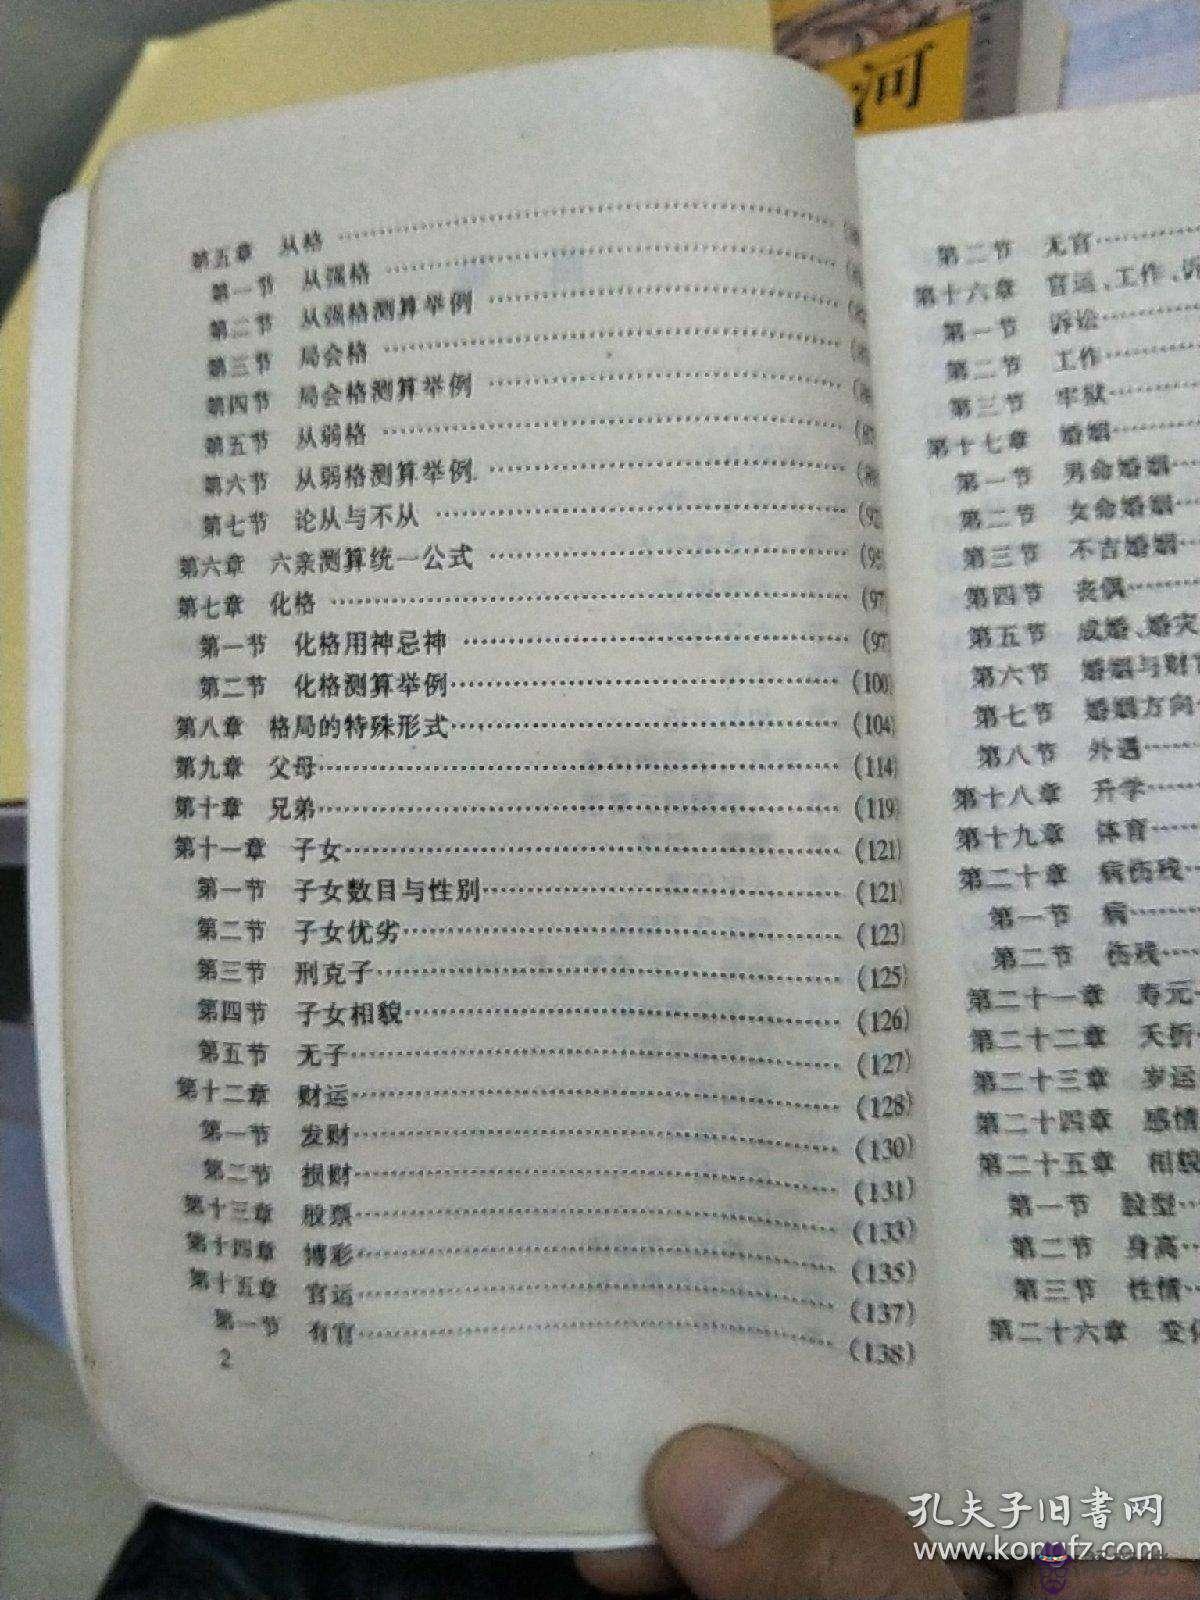 河
第五章 从格
第一节 从强格
第二节 从强格测算举例
第三节 局会格
第四节 局会格测算举例
第五节 从弱格
第六节 从弱格测算举例
第七节 论从与不从 (92
第六章 六亲测算统一公式 (95
第七章 化格 (97
第一节 化格用神忌神 (97
第二节 化格测算举例 (100)
第八章 格局的特殊形式 (104)
第九章 父母 (114)
第十章 兄弟 (119)
第十一章 子女 (121)
第一节 子女数目与性别 (121)
第二节 子女优劣 (123)
第三节 刑克子 (125)
第四节 子女相貌 (126)
第五节 无子 (127)
第十二章 财运 (128)
第一节 发财 (130)
第二节 损财 (131)
第十三章 股票 (133)
第十四章 博彩 (135)
第十五章 官运 (137)
第一节 有官 (138)
2
第二节 无官
第十六章 官运、工作、诉
第一节 诉讼
第二节 工作
第三节 牢狱
第十七章 婚姻
第一节 男命婚姻
第二节 女命婚姻
第三节 不吉婚姻
第四节 丧偶
第五节 成婚、婚灾
第六节 婚姻与财官
第七节 婚姻方向
第八节 外遇
第十八章 升学
第十九章 体育
第二十章 病伤残
第一节 病
第二节 伤残
第二十一章 寿元
第二十二章 夭折
第二十三章 岁运
第二十四章 感情
第二十五章 相貌
第一节 脸型
第二节 身高
第三节 性情
第二十六章 变
孔夫子旧书网
www.kongfz.com